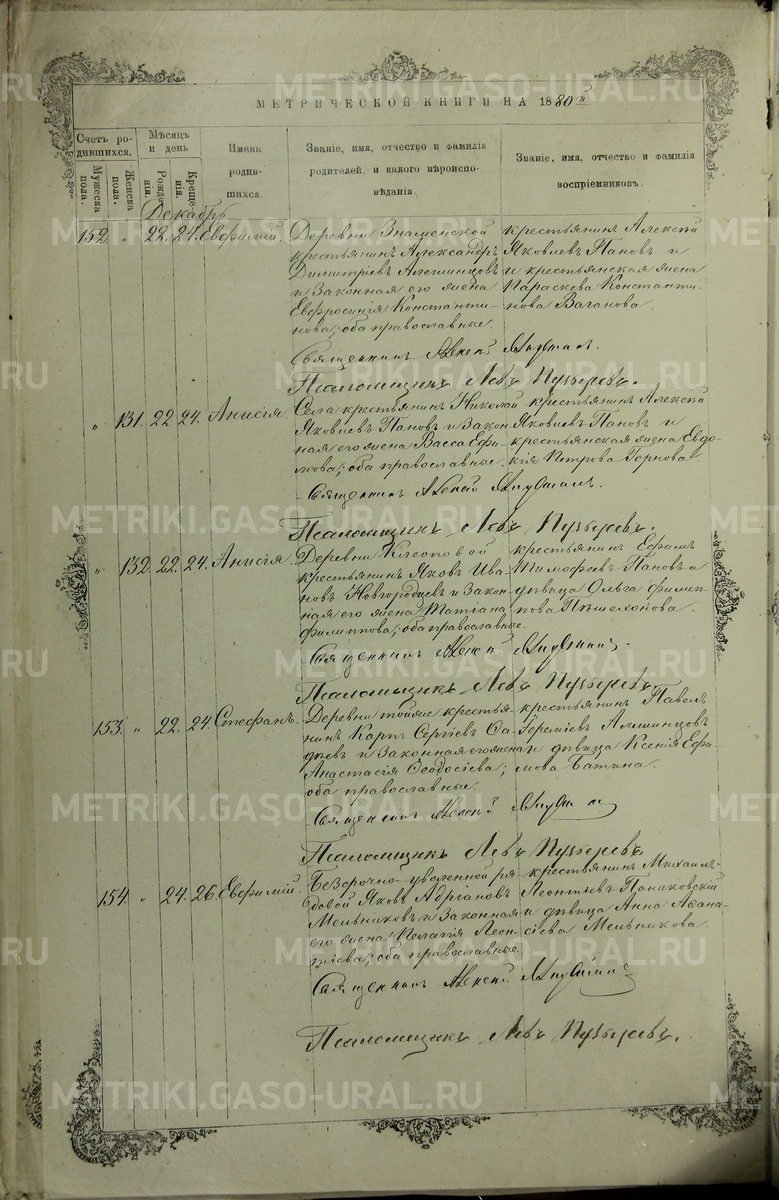 МЕТРИЧЕСКОЙ КНИГИ НА 1880 й
Счетъ родившихся.
Мѣсяцъ и день
Имена родившихся.
Званіе, имя, отчество и фамилія родителей, и какого вѣроисповѣданія.
Званіе, имя, отчество и фамилія воспріемниковъ.
Мужеска пола.
Женска пола.
Рожденія.
Крещенія.
Декабрь
152. " 22. 24. Евфимій.
Деревни Знаменской
крестьянинъ Александръ
Димитріевъ
и законная его жена
Евфросинія Константи-
нова; оба православные.
крестьянинъ Алексій
Яковлевъ Пановъ и
крестьянская жена
Параскева Константи-
нова Ваганова.
Священникъ Алексій
Псаломщикъ Левъ Пузыревъ.
" 131. 22 24. Анисія
Села крестьянинъ Николай
Яковлевъ Пановъ и закон-
ная его жена Васса Ефи-
мова; оба православные.
крестьянинъ Алексій
Яковлевъ Пановъ и
крестьянская жена Евдо-
кія Петрова Горнова.
Священникъ Алексій
Псаломщикъ Левъ Пузыревъ.
" 132. 22. 24. Анисія.
Деревни
крестьянинъ Яковъ Ива-
новъ Новгородцевъ и закон-
ная его жена Татіана
Филиппова; оба православные.
крестьянинъ Ефимъ
Тимофеевъ Пановъ и
дѣвица Ольга Филип-
пова Пѣшехонова.
Священникъ Алексій
Псаломщикъ Левъ Пузыревъ.
153. " 22. 24. Стефанъ.
Деревни тойже крестья-
нинъ Карпъ Сергіевъ
и законная его жена
Анастасія Ѳеодосіева;
оба православные.
крестьянинъ Павелъ
и дѣвица Ксенія Ефи-
мова
Священникъ Алексій
Псаломщикъ Левъ Пузыревъ.
154. " 24. 26. Евфимій.
Безсрочно-уволенной ря-
довой Яковъ Адріановъ
Мельниковъ и законная
его жена Пелагія Леон-
тіева; оба православные.
крестьянинъ Михаилъ
Леонтьевъ Паниковскій
и дѣвица Анна Аѳана-
сіева Мельникова.
Священникъ Алексій
Псаломщикъ Левъ Пузыревъ.
METRIKI.GASO-URAL.RU